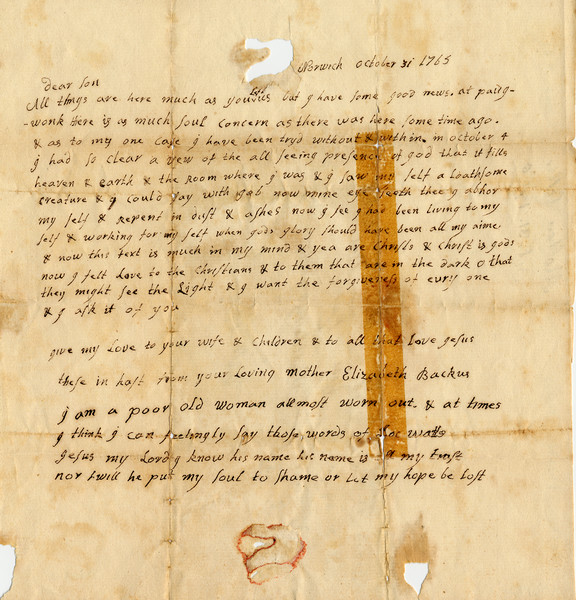 Norwich october 31 1765
dear son
All things are here much as you left us but I have some good news. at pauig-
-wonk Here is as much soul concern as there was here some time ago.
& as to my one case I have been tryd without & within. in october 4
I had so clear a vew of the all seeing presence of god that it fills
heaven & earth & the room where I was & I saw my self a loathsome
creature & I could say with Job now mine eye seeth thee I abhor
my self & repent in dust & ashes now I see I had been living to my
self & working for my self when gods glory should have been all my aime
& now this text is much in my mind & yea are Christs & Christ is gods
now I felt Love to the Christians & to them that are in the dark O that
they might see the Light & I want the forgiveness of evry one
& I ask it of you
give my Love to your wife & Children & to all that Love Jesus
these in hast from your Loving mother Elizabeth Backus
I am a poor old woman allmost worn out. & at times
I think I can feelingly say those words of Doc watts
Jesus my Lord I know his name his name is all my trust
nor will he put my soul to shame or Let my hope be Lost